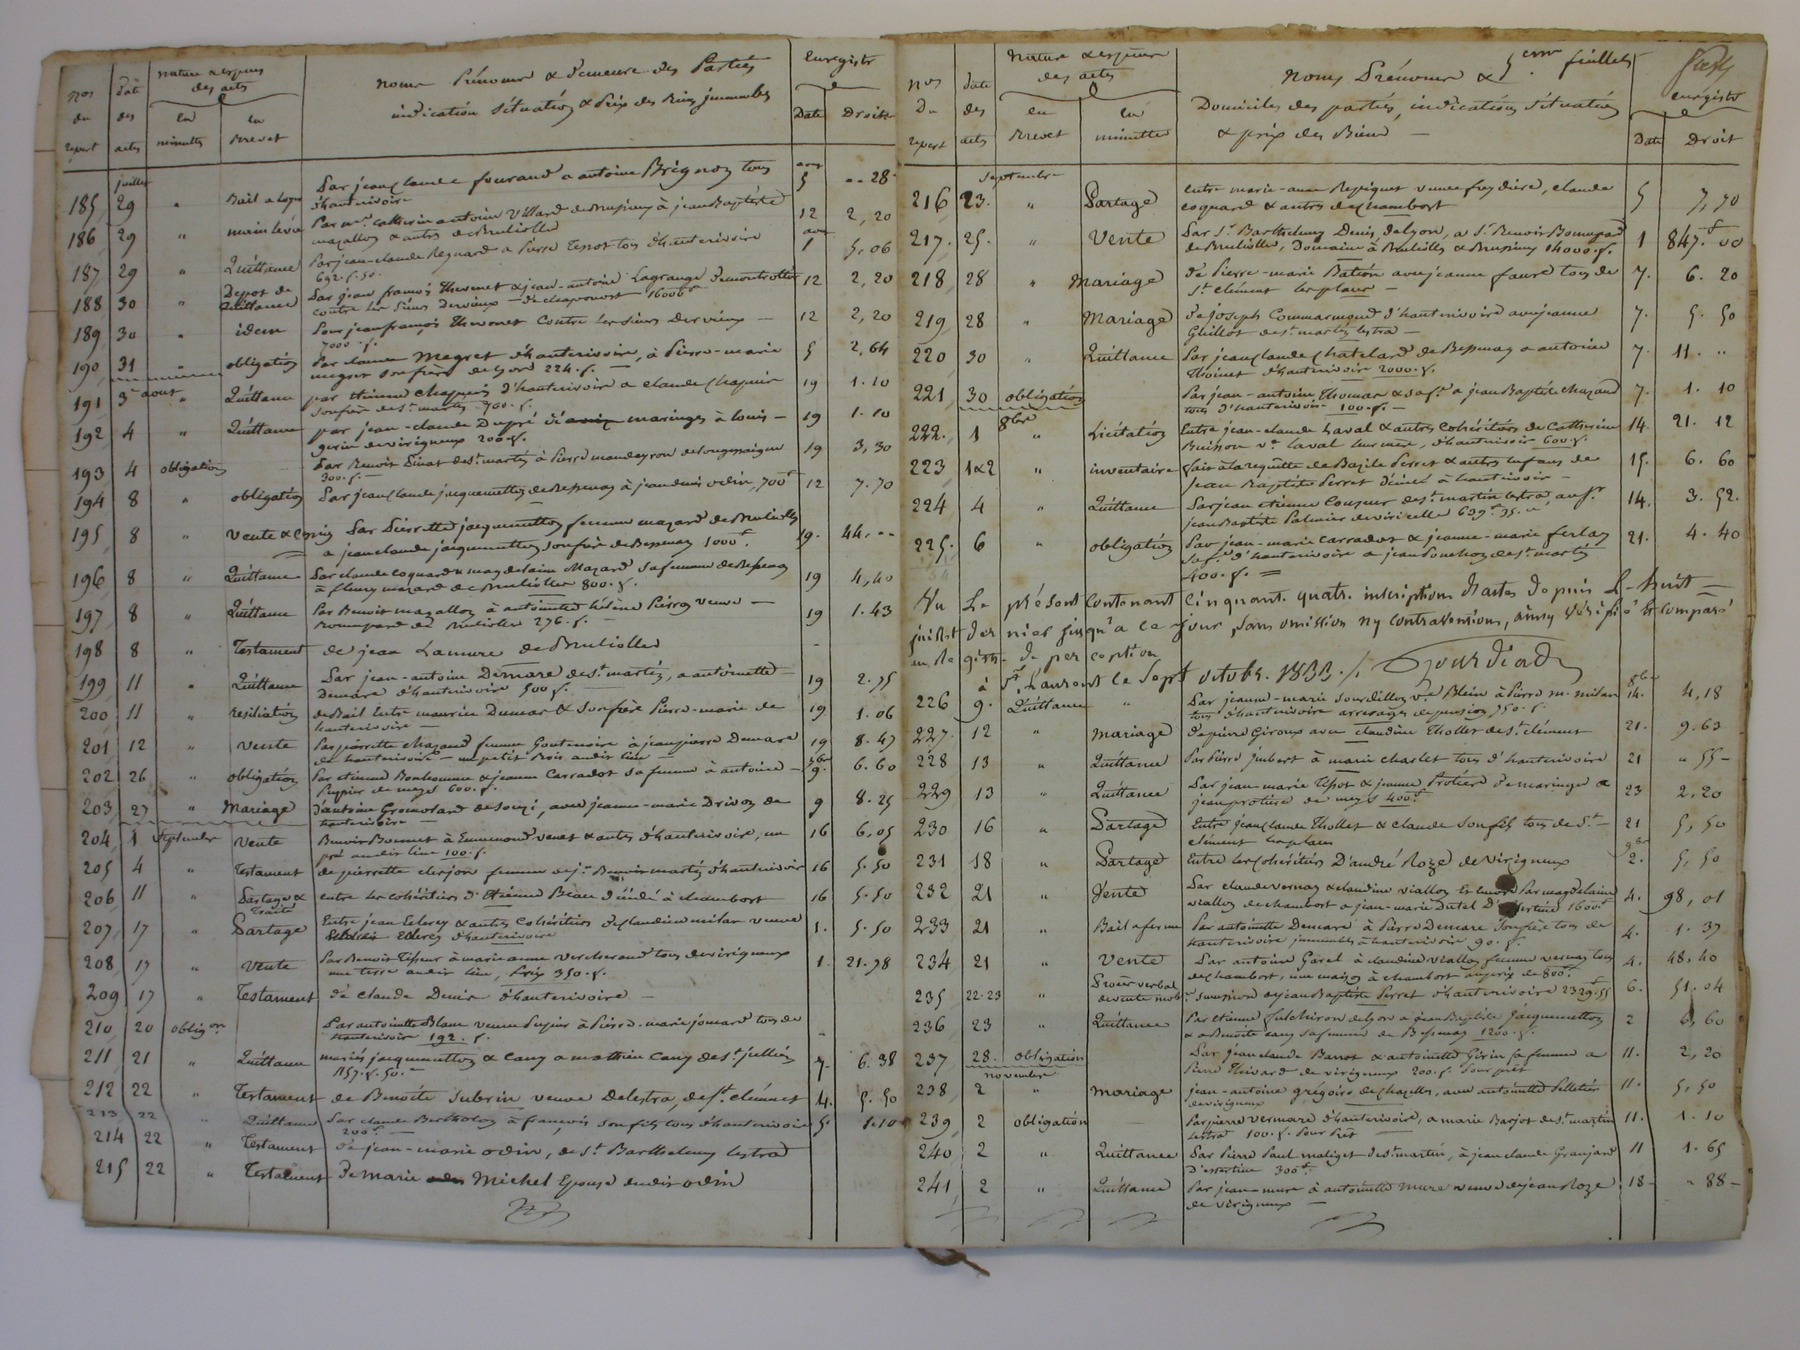 Nos du repert
date des actes
nature & especes des actes
en minuttes
en Brevet
noms Prénoms & demeure des Parties
indication Situation & Prix des Biens immeubles
Enregistr
Date Droits
juillet
185 29 " Bail a loyer Par jean Claude fourand a antoine Brignon tous 5 " " 28
d'hauterivoire
186 29 " main levée Par catherine antoine Villard de Brussieu à jean Baptiste 12 2,20
mazallon & autres de Brullioles
187 29 " Quittance Par jean-claude Regnard a Pierre tous d'hauterivoire 1 5,06
692.f.50.
188 30 " Depot de Quittance Par jean françois Thevenet & jean-antoine Lagrange de montrottier 12 2,20
contre les Sieurs Dervieux
189 30 " idem Pour jean françois Thevenet Contre les Sieurs Dervieux — 12 2,20
7000.f.
190 31 " obligation Par claude Megret d'hauterivoire, à Pierre-marie 5 2,64
megret son frère de Lyon 224.f.
191 3 aout " Quittance par étienne Chapuis d'hauterivoire a claude Chapuis 19 1.10
son frère de St. martin
192 4 " Quittance par jean-claude Dupré de maringes à louis — 19 1.10
gerin de virigneux 200.f.
193 4 obligation Par Benoit de St. martin à Pierre 19 3,30
300.f.
194 8 " obligation Par jean Claude jacquemetton de Bessenay à jean denis odin, 700f 12 7.70
195 8 " Vente Par Pierrette jacquemetton femme mazard de Brullioles 19. 44. " "
a jean claude jacquemetton son frère de Bessenay 1000f.
196 8 " Quittance Par claude coquard & magdelaine Mazard sa femme de Bessenay 19 4,40
à fleury mazard de Brullioles 800.f.
197 8 " Quittance Par Benoit mazallon à antoinette hélène Pierron veuve — 19 1.43
de Brullioles 276.f.
198 8 " Testament de jean Lamure de Brullioles
199 11 " Quittance Par jean-antoine Demare de St. martin, a antoinette 19 2.75
Demare d'hauterivoire 500f.
200 11 " resiliation de Bail Entre maurice Dumas & son frère Pierre-marie de 19 1.06
hauterivoire —
201 12 " Vente Par pierrette Chazaud femme Goutenoire à jean pierre Demare 19 8.47
de hauterivoire — un petit Bois audit lieu —
202 26 " obligation Par etienne Bonhomme & jeanne Carradot sa femme à antoine — 9. 6.60
Pupier de meys 600.f.
203 27 " Mariage d'antoine Gromolard de Souzi, avec jeanne-marie Drivon de 9 8.25
hauterivoire —
204 1 Septembre Vente Benoit Bonnet à Ennemond venet & autres d'hauterivoire, un 16 6,05
pré audit lieu 100.f.
205 4 " Testament de pierrette clerjon femme de Benoit martin d'hauterivoire 16 5.50
206 11 " Partage & Traité entre les cohéritiers d'Etienne Beau décédé à chambost 16 5.50
207 17 " Partage Entre jean & autres Cohéritiers de Claudine milan veuve 1. 5.50
d'hauterivoire
208 17 " Vente Par Benoit Tisseur à marie anne Vercherand tous de virigneux 1. 21.78
une terre audit lieu, Prix 350.f.
209 17 " Testament de claude Denis d'hauterivoire —
210 20 obligon Par antoinette Blanc veuve Pupier à Pierre-marie jomard tous de
hauterivoire 192.f.
211 21 " Quittance marie jacquemetton & Cany a mathieu Cany de St jullien 7. 6.38
1157.f.50.
212 22 " Testament de Benoite Subrin veuve Delestra, de St. clément 4. 5.50
213 22 " Quittance Par claude Bertholon à françois son fils tous d'hauterivoire 5 1.10
200f.
214 22 " Testament de jean-marie odin, de St. Barthelemy lestra
215 22 " Testament de marie Michel Epouse dudit odin
Nos Du repert
date des actes
Nature & espèces des actes
en Brevet
en minutte
5eme feuillet
Noms Prénoms &
Domiciles des parties, indication Situation
& prix des Biens —
enregistr
Date Droit
Septembre
216 23. " Partage entre marie-anne veuve freydière, claude 5 7,70
coquard & autres de chambost
217. 25. " Vente Par Sr. Barthelemy Denis de Lyon, a Sr. Benoit 1 847.f00
de Brullioles, Domaine à Brullioles & Brussieux 14000.f.
218 28 " Mariage de Pierre-marie Bation avec jeanne faure tous de 7. 6.20
St clément les places —
219 28 " Mariage de joseph Commarmond d'hauterivoire avec jeanne 7. 5.50
Guillot de St. martin lestra —
220 30 " Quittance Par jean Claude Chatelard de Bessenay a antoine 7. 11. "
Thoinet d'hauterivoire 2000.f.
221 30 obligation Par jean-antoine Thomas & sa fe. a jean Baptiste Chazaud 7. 1.10
tous d'hauterivoire 100.f. —
8bre
222. 1 " Licitation Entre jean-claude Laval & autres Cohéritiers de Catherine 14. 21.12
Buisson ve. Laval leur mère, d'hauterivoire 600.f.
223 1&2 " inventaire fait à la requête de Bazile Perret & autres enfans de 15. 6.60
jean Baptiste Perret décédé à hauterivoire —
224 4 " Quittance Par jean etienne de St. martin lestra, au Sr 14. 3.52.
jean Baptiste Palmier de viricelle 639f.35.c
225. 6 " obligation Par jean-marie Carradot & jeanne-marie ferlay 21. 4.40
sa fe. d'hauterivoire a jean Ponchon de St. martin
400.f. =
Vu Le présent Contenant Cinquante quatre inscriptions d'actes depuis L - huit
juillet dernier jusqu'a ce jour, sans omission ny contraventions, ainsy vérifié & comparé
au Registre de perception
à St. Laurent le Sept octobre 1833. /.
226 9. " Quittance Par jeanne-marie sourdillon ve Blein à Pierre m. milan 14. 4,18
tous d'hauterivoire arrerages de pension 750.f.
227. 12 " Mariage de pierre Giroux avec claudine Thollet de St. clément 21. 9.63
228 13 " Quittance Par Pierre jubert à marie charlet tous d'hauterivoire 21 " 55 —
229 13 " Quittance Par jean-marie & jeanne Protière de maringes a 23 2,20
jean protière de meys 400f.
230 16 " Partage Entre jean Claude Thollet & claude son fils tous de St. — 21 5,50
clément les places
231 18 " Partage Entre les Cohéritiers D'andré Roze de Virigneux 2. 5,50
232 21 " Vente Par claude vernay & claudine viallon et encore Par magdelaine 4. 98,01
viallon de chambost a jean-marie Dutel d' 1600f
233 21 " Bail a ferme Par antoinette Demare à Pierre Demare son frère tous de 4. 1.37
hauterivoire immeubles à hauterivoire 90.f.
234 21 " Vente Par antoine Garel à claudine viallon femme vernay tous 4. 48,40
de chambost, une maison à chambost au prix de 800f.
235 22-23 " Procès verbal de vente mobre. succession de jean Baptiste Perret d'hauterivoire 2329f.55 6. 51.04
236 23 " Quittance Par etienne de Lyon a jean Baptiste Jacquemetton 2 6,60
& a Benoite Cany sa femme de Bessenay 1200.f.
237 28. obligation Par jean claude Barrot & antoinette Girin sa femme a 11. 2,20
Pierre Thivard de virigneux 200.f. Pour prêt
novembre
238 2 " Mariage jean-antoine grégoire de Chazelles, avec antoinette Pelletier 11. 5,50
de virigneux
239 2 obligation — Par pierre vermare d'hauterivoire, a marie Barjot de St. martin 11. 1.10
lestra 100.f. Pour Prêt
240 2 " Quittance Par Pierre Paul maliget de St. martin, à jean claude Granjard 11 1.65
d'essertine 300f.
241 2 " Quittance Par jean mure à antoinette Mure veuve de jean Roze 18 — " 88 —
de virigneux —